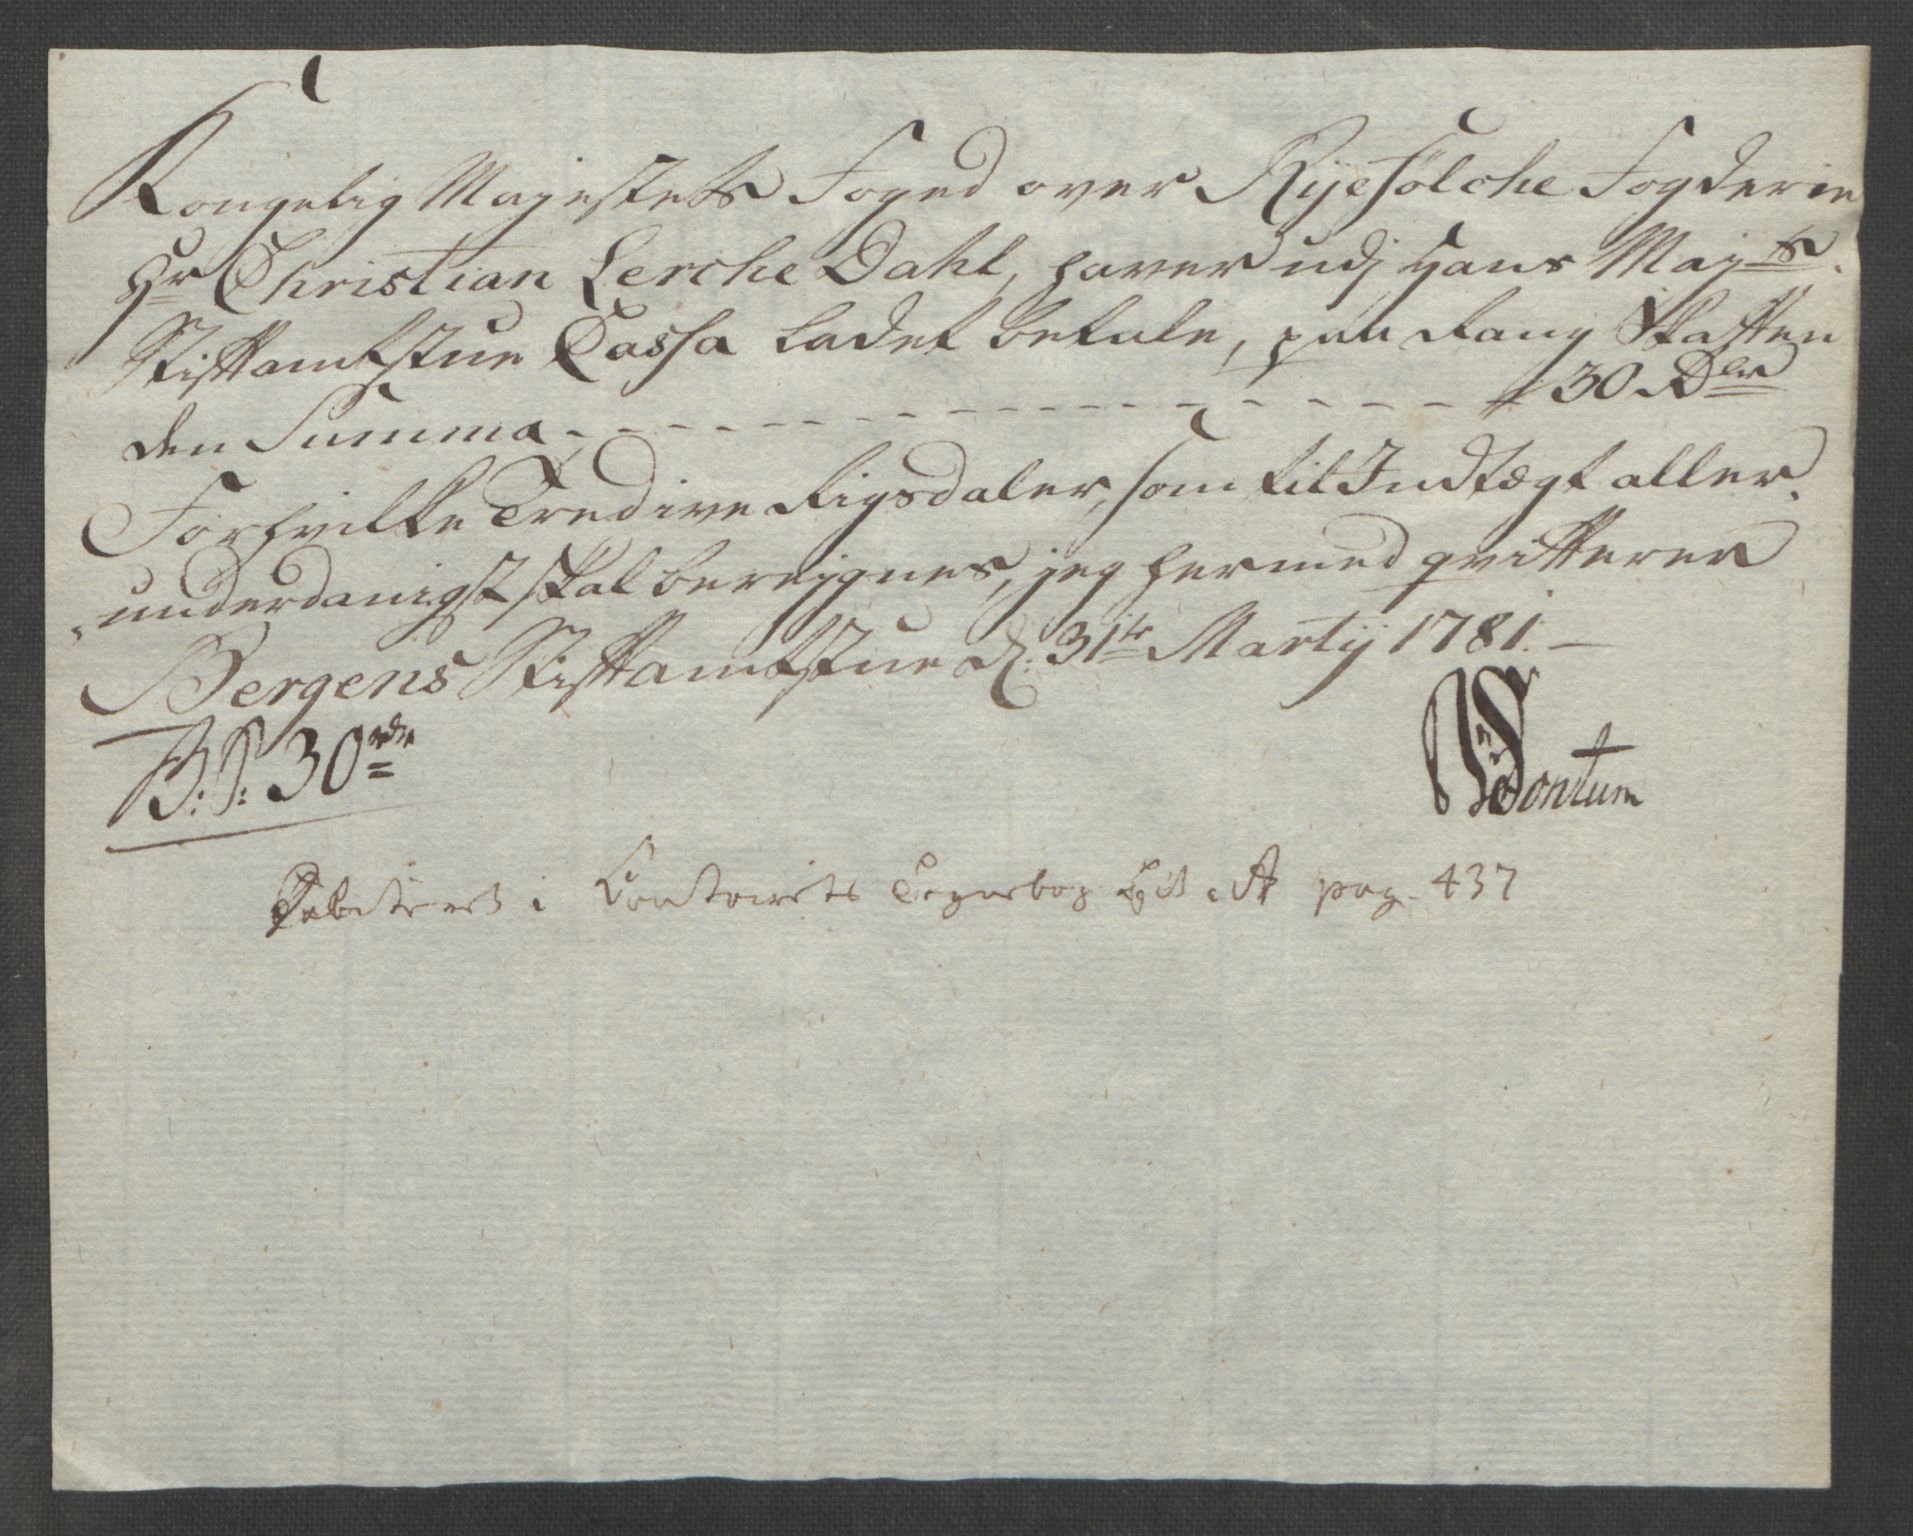 Kongelig Majestets Foged over Ryefölche Fogderie
Hr Christian Lerche Dahl, haver udj Hans Maj:ts
Stiftamtstue Cassa ladet betale, paa Rang Skatten
den Summa - - - - - - - - - - - - - - - - 30 Rdlr
Forhvilke Tredive Rigsdaler, som til Indtægt aller
underdanigst skal bereignes, jeg hermed qvitterer
Bergens Stiftamtstue d: 31te Martij 1781. —
30 rdr
Wontum
Debiteret i Contoirets Tegnebog Lit. A pag. 437